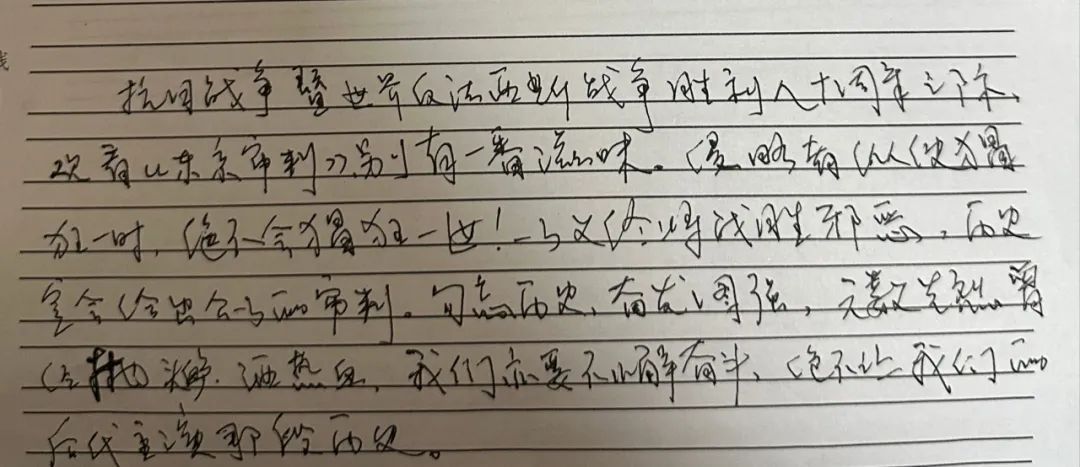 抗日战争暨世界反法西斯战争胜利八十周年之际,
观看《东京审判》别有一番滋味。侵略者纵使猖
狂一时,绝不会猖狂一世!正义终将战胜邪恶,历史
定会给出公正的审判。勿忘历史,奋发图强,先烈曾
经抛头颅洒热血,我们亦要不懈奋斗,绝不让我们的
后代重演那段历史。